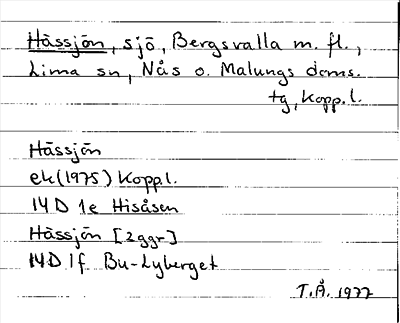 Hässjön, sjö, Bergsvalla m. fl.,
Lima sn, Nås o. Malungs doms.
tg, Kopp.l.
Hässjön
ek(1975) Kopp.l.
14D 1e Hisåsen
Hässjön [2ggr]
14D 1f Bu-Lyberget
T.Å. 1977